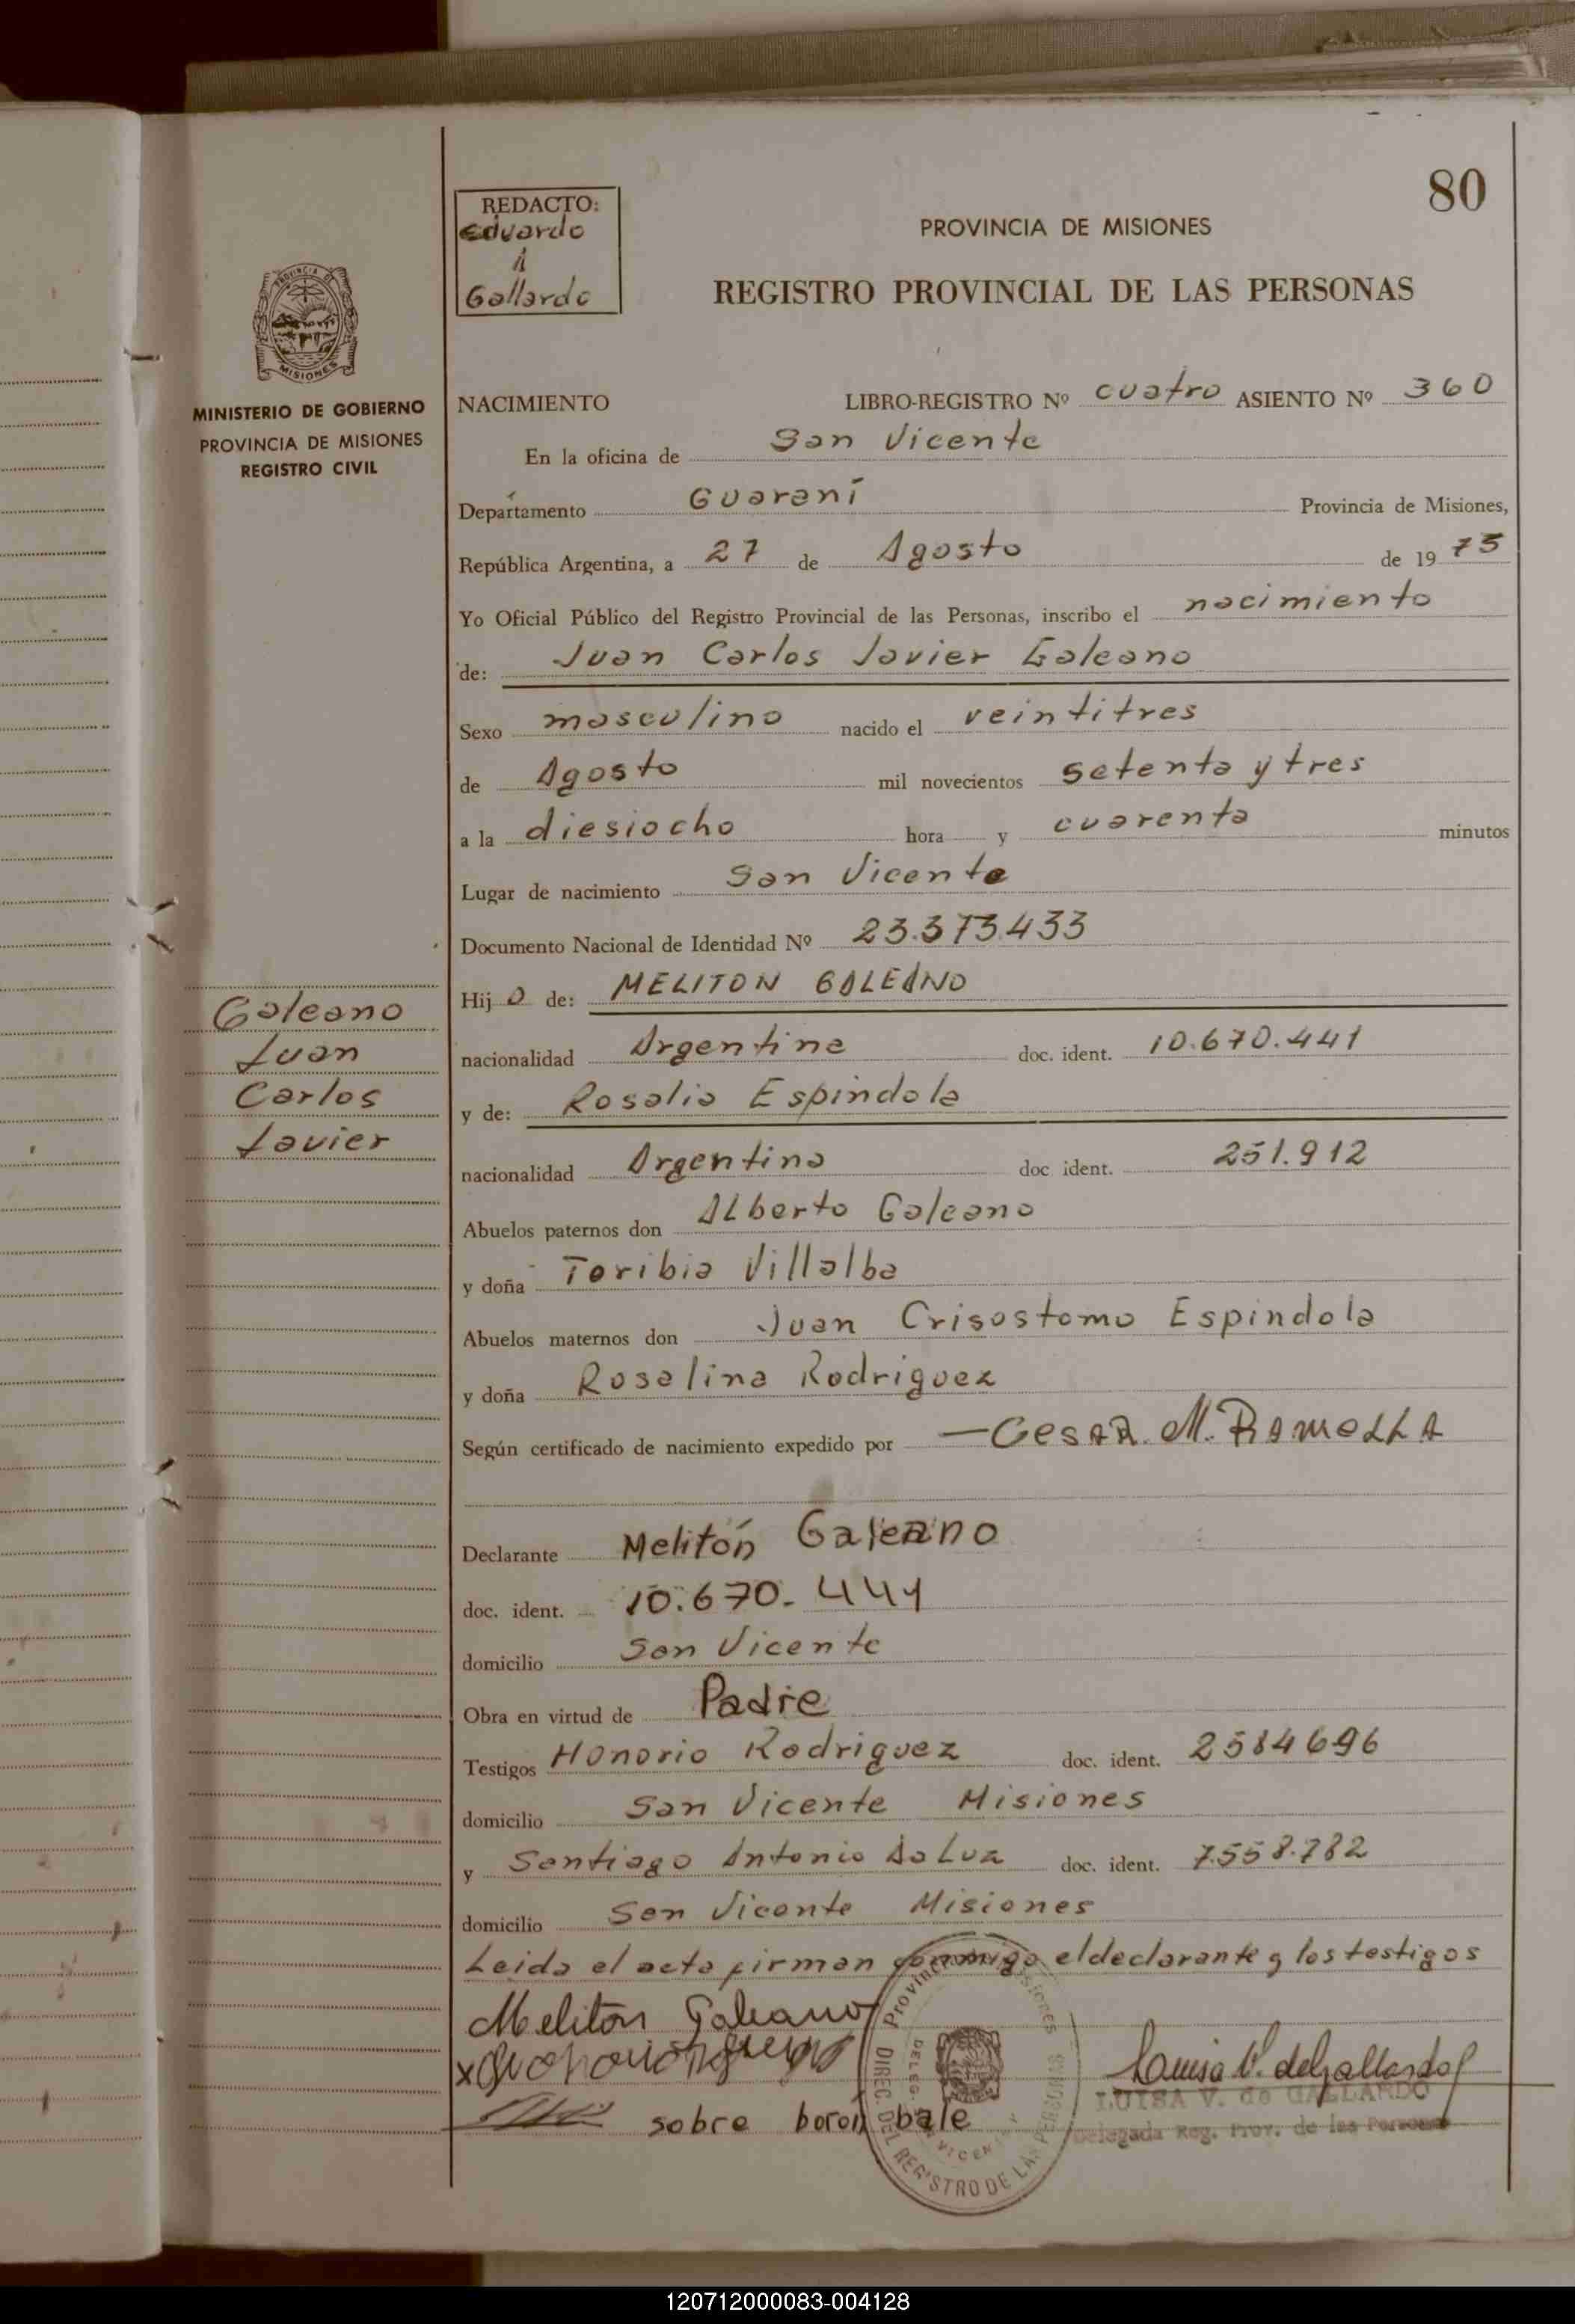 80
REDACTO:
Eduardo
A
Gallardo
PROVINCIA DE MISIONES
REGISTRO PROVINCIAL DE LAS PERSONAS
PROVINCIA DE
MISIONES
MINISTERIO DE GOBIERNO
PROVINCIA DE MISIONES
REGISTRO CIVIL
NACIMIENTO LIBRO-REGISTRO Nº cuatro ASIENTO Nº 360
En la oficina de San Vicente
Departamento Guaraní Provincia de Misiones,
República Argentina, a 27 de Agosto de 19 73
Yo Oficial Público del Registro Provincial de las Personas, inscribo el nacimiento
de: Juan Carlos Javier Galeano
Sexo masculino nacido el veintitres
de Agosto mil novecientos setenta y tres
a la diesiocho hora y cuarenta minutos
Lugar de nacimiento San Vicente
Documento Nacional de Identidad Nº 23.373.433
Hij o de: MELITON GALEANO
nacionalidad Argentina doc. ident. 10.670.441
y de: Rosalia Espindola
nacionalidad Argentina doc ident. 251.912
Abuelos paternos don Alberto Galeano
y doña Toribia Villalba
Abuelos maternos don Juan Crisostomo Espindola
y doña Rosalina Rodriguez
Según certificado de nacimiento expedido por — Cesar M. Ramella
Galeano
Juan
Carlos
Javier
Declarante Melitón Galeano
doc. ident. 10.670.441
domicilio San Vicente
Obra en virtud de Padre
Testigos Honorio Rodriguez doc. ident. 2584696
domicilio San Vicente Misiones
y Santiago Antonio Da Luz doc. ident. 7.558.782
domicilio San Vicente Misiones
Leida el acta firman conmigo el declarante y los testigos
Meliton Galeano
Luisa V. de Gallardo
LUISA V. de GALLARDO
Delegada Reg. Prov. de las Personas
sobre borón bale
DIREC. DEL REGISTRO DE LAS PERSONAS
120712000083-004128